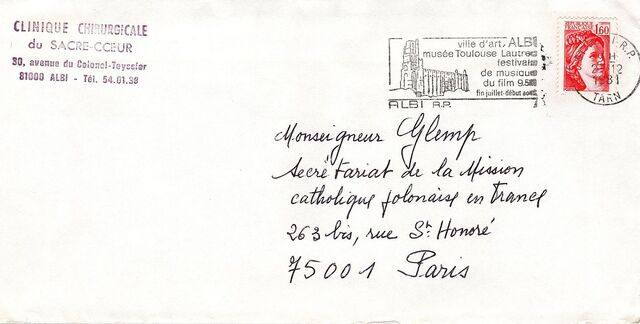 CLINIQUE CHIRURGICALE
du SACRE-CŒUR
30, avenue du Colonel-Teyssier
81000 ALBI - Tél. 54.61.39
ville d'art, ALBI
musée Toulouse Lautrec
festivals
de musique
du film 9.5
fin juillet-début août
ALBI R.P.
1,60
1981
TARN
Monseigneur Glemp
Secrétariat de la Mission
catholique polonaise en France
263 bis, rue St Honoré
75001 Paris